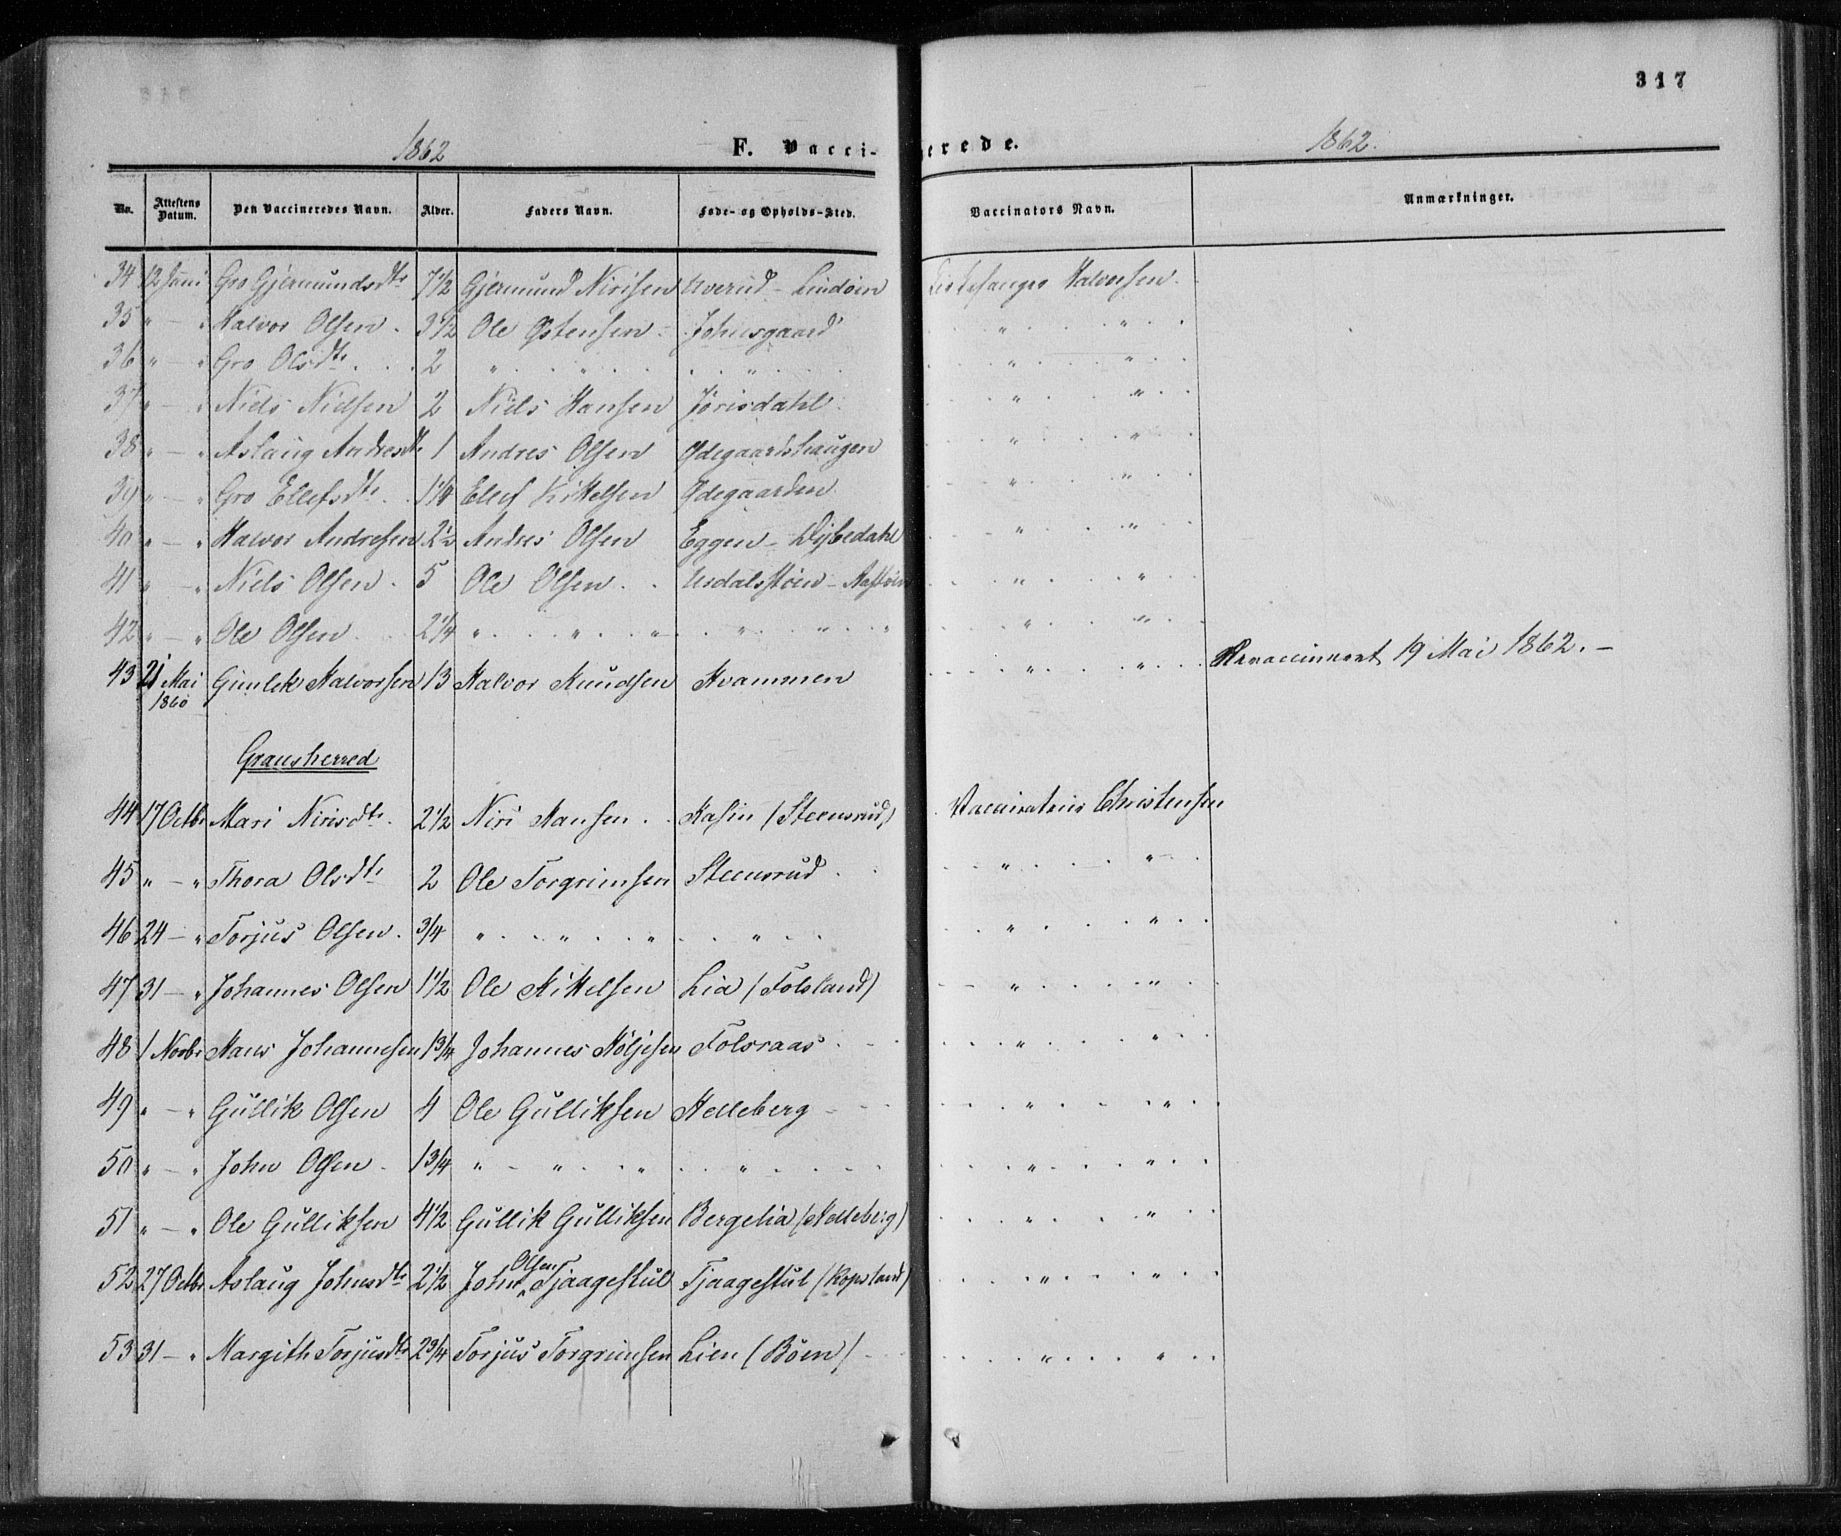 317
1862 F. Vaccinerede. 1862.
No. Attestens Datum. Den Vaccineredes Navn. Alder. Faders Navn. Føde- og Opholds-Sted. Vaccinators Navn. Anmærkninger.
34 12 Juni Gro Gjermundsdtr 7 1/2 Gjermund Nirisen Uverud - Lindöin Kirkesanger Halvorsen.
35 " - " Halvor Olsen. 3 1/2 Ole Østensen Johnsgaard " "
36 " - " Gro Olsdtr. 2 " " " " "
37 " - " Niels Nielsen 2 Niels Hansen Jørisdahl " "
38 " - " Aslaug Andresdtr 1 Andres Olsen Ødegaardshaugen " "
39 " - " Gro Ellefsdtr. 1 1/4 Ellef Kittelsen Ødegaarden " "
40 " - " Halvor Andresen 2 1/2 Andres Olsen Eggen - Dybedahl " "
41 " - " Niels Olsen. 5 Ole Olsen. Urdalsstöen - " "
42 " - " Ole Olsen 2 1/4 " " " " " " " "
43 21 Mai 1860 Gunlek Halvorsen 13 Halvor Knudsen Kvammen " " Revaccineret 19 Mai 1862. -
Gransherred
44 17 Octbr Mari Nirisdtr. 2 1/2 Niri Hansen. Kasin (Steensrud,) Vaccinatrice Christensen
45 " - " Thora Olsdtr 2 Ole Torgrimsen Steensrud " "
46 24 - " Torjus Olsen. 3/4 " " " " " "
47 31 - " Johannes Olsen 1 1/2 Ole Kittelsen Lia (Folsland) " "
48 1 Novbr Hans Johannesen 1 3/4 Johannes Höljesen Folsraas " "
49 " - " Gullik Olsen 4 Ole Gulliksen Helleberg " "
50 " - " John Olsen. 1 3/4 " " " " " "
51 " - " Ole Gulliksen 4 1/2 Gullik Gulliksen Bergelia (Helleberg) " "
52 27 Octbr Aslaug Johnsdtr 2 1/2 John Olsen Tjaagestul Tjaagestul (Kopsland) " "
53 31 - " Margith Torjusdtr 2 3/4 Torjus Torgrimsen Lien (Böen) " "